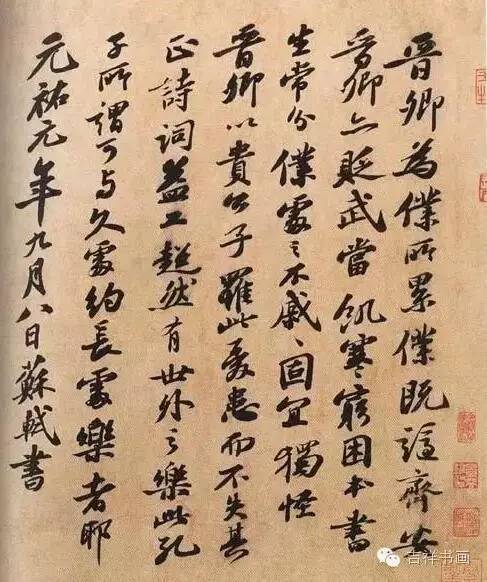 晉卿為僕所累僕既謫齊安
晉卿亦貶武當飢寒窮困本書
生常分僕處之不戚〻固宜獨怪
晉卿以貴公子罹此憂患而不失其
正詩詞益工超然有世外之樂此孔
子所謂可与久處約長處樂者耶
元祐元年九月八日蘇軾書
吉祥书画